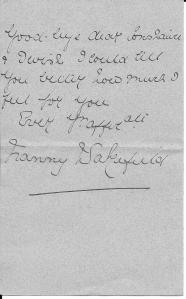 Good-bye dear Constance
I wish I could tell
you better how much I
feel for you
Ever Yr affect
Franny Wakefield